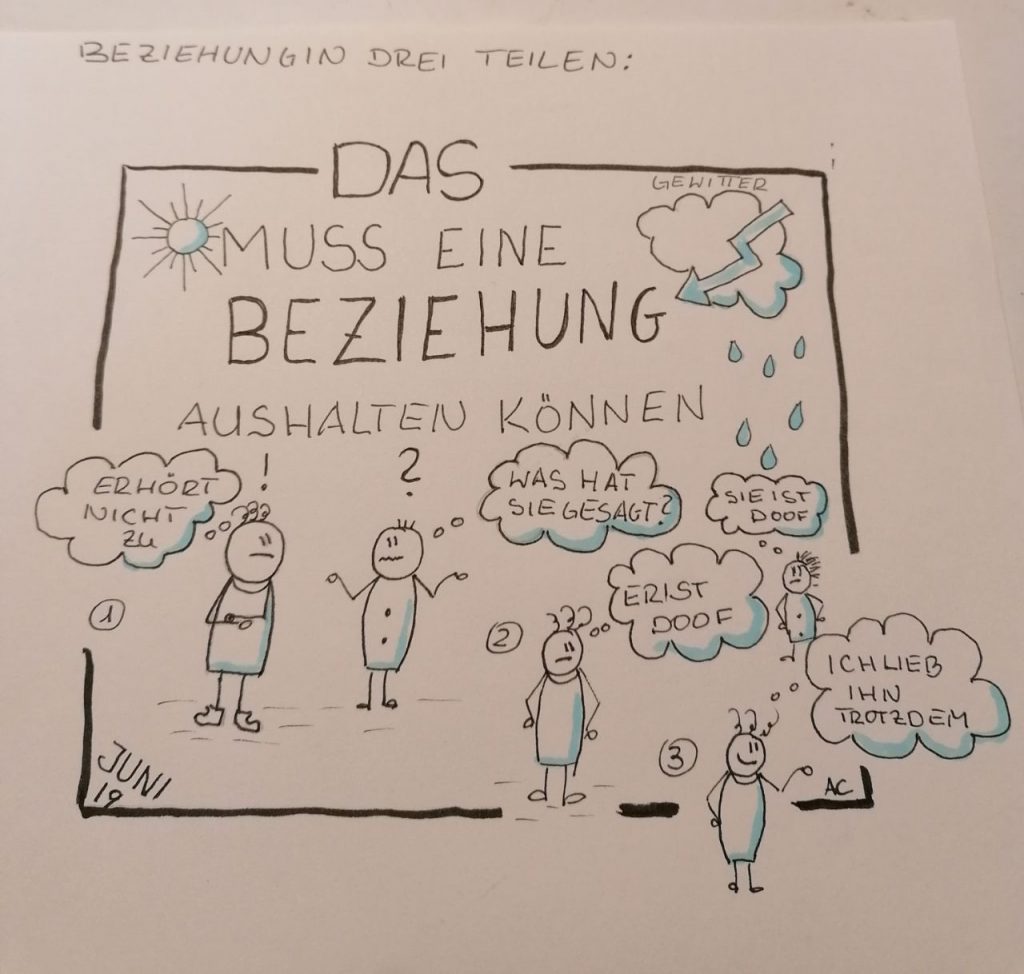 BEZIEHUNGIN DREI TEILEN:
DAS
GEWITTER
MUSS EINE
BEZIEHUNG
AUSHALTEN KÖNNEN
!
?
ERHÖRT
NICHT
ZU
WAS HAT
SIE GESAGT?
SIE IST
DOOF
1
2
ER IST
DOOF
3
ICH LIEB
IHN
TROTZDEM
JUNI
19
AC